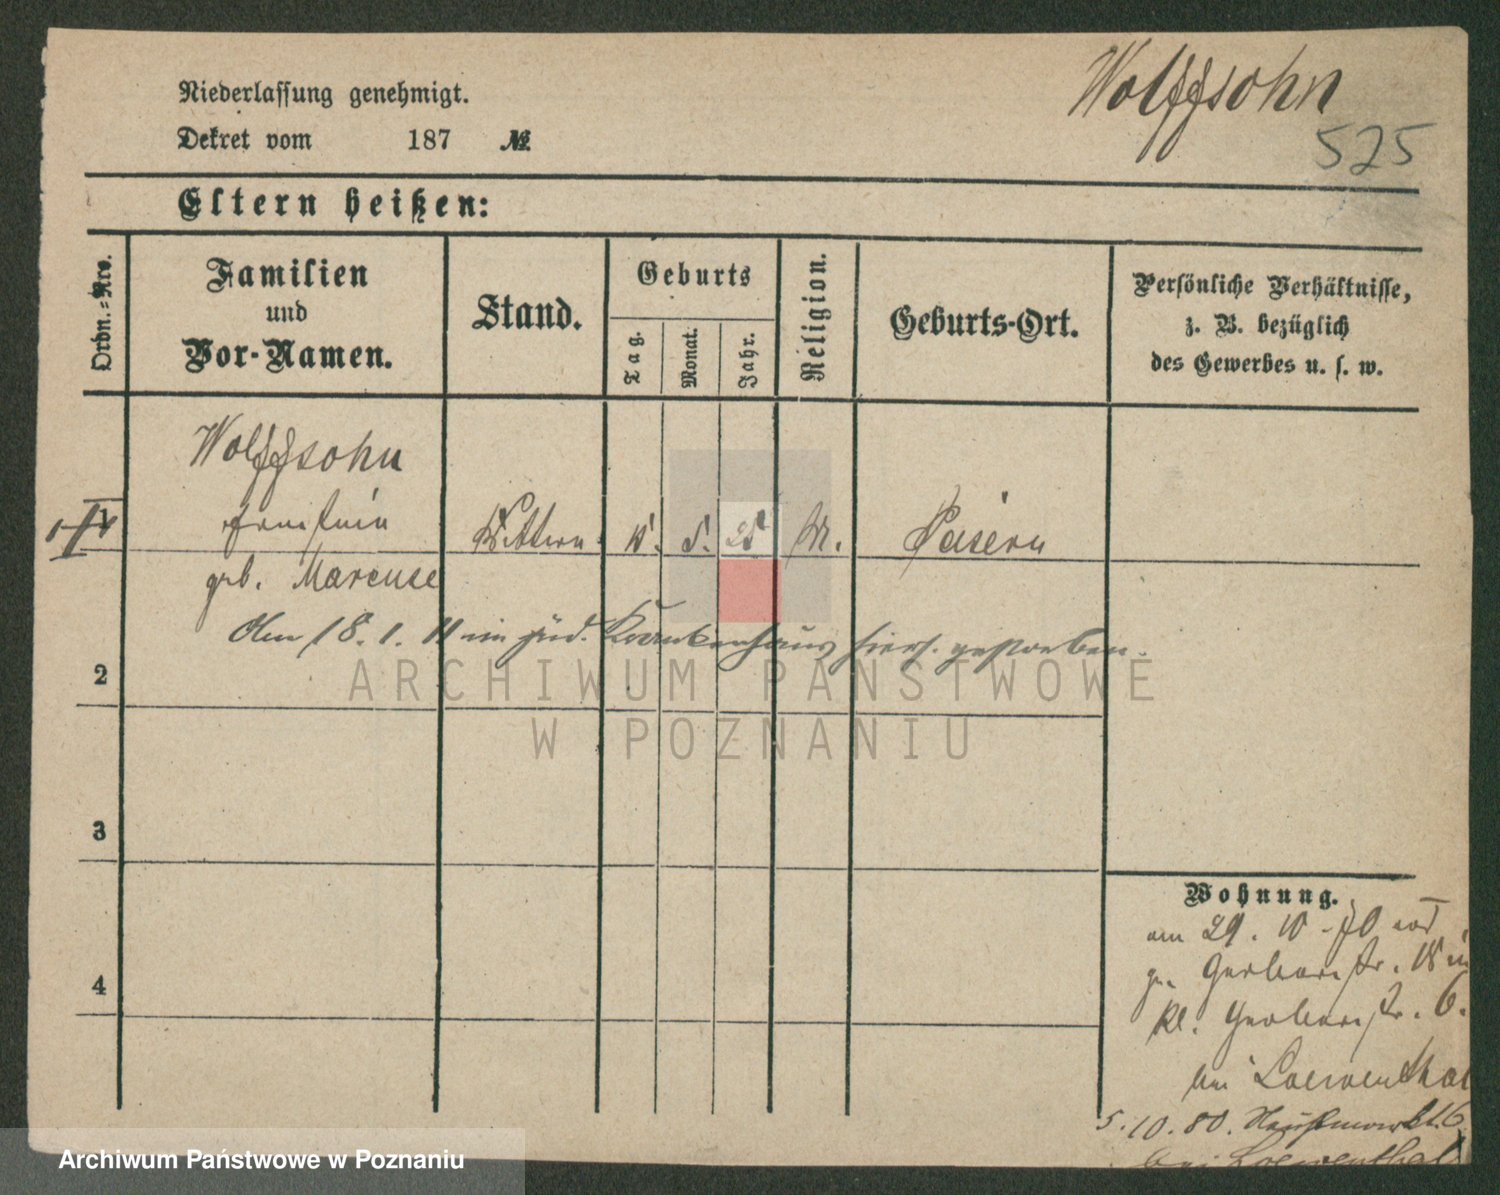 Wolffsohn
525
Niederlassung genehmigt.
Dekret vom 187 №
Eltern heißen:
Ordn.-Nro.
Familien
und
Vor-Namen.
Stand.
Geburts
Tag.
Monat.
Jahr.
Religion.
Geburts-Ort.
Persönliche Verhältnisse,
z. B. bezüglich
des Gewerbes u. s. w.
Wolffsohn
1
geb. Marcuse
Am 18. 1. 11 im jüd. Krankenhaus hiers. gestorben.
2
3
4
Wohnung.
am 29. 10
Gerberstr. 18 in
kl. Gerberstr. 6.
bei Loewenthal
5. 10. 80.
bei Loewenthal
ARCHIWUM PAŃSTWOWE
W POZNANIU
Archiwum Państwowe w Poznaniu